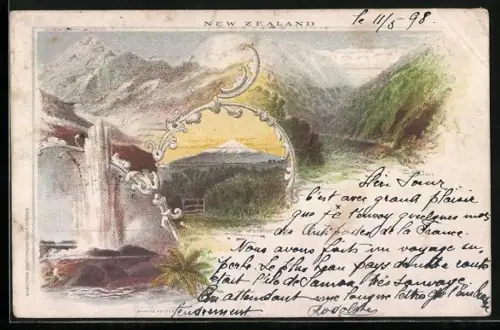 NEW ZEALAND
le 11/5 - 98.
Chère Soeur
C'est avec grand plaisir
que je t'envoy quelques mots
des Antipodes de la France.
Nous avons faits un voyage
Le plus beau pays de notre route
était l'île de Samoa, très sauvage
En attendant une longue lettre je t'embrasse
tendrement
Rodolphe